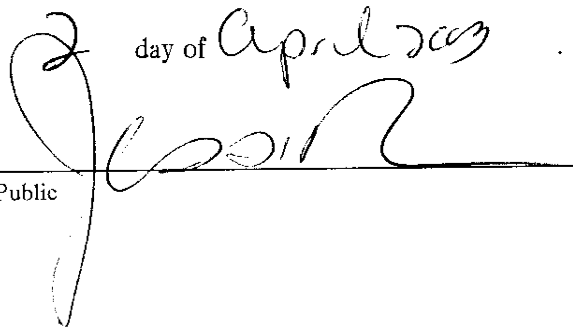 2 day of April 2003 .
Public